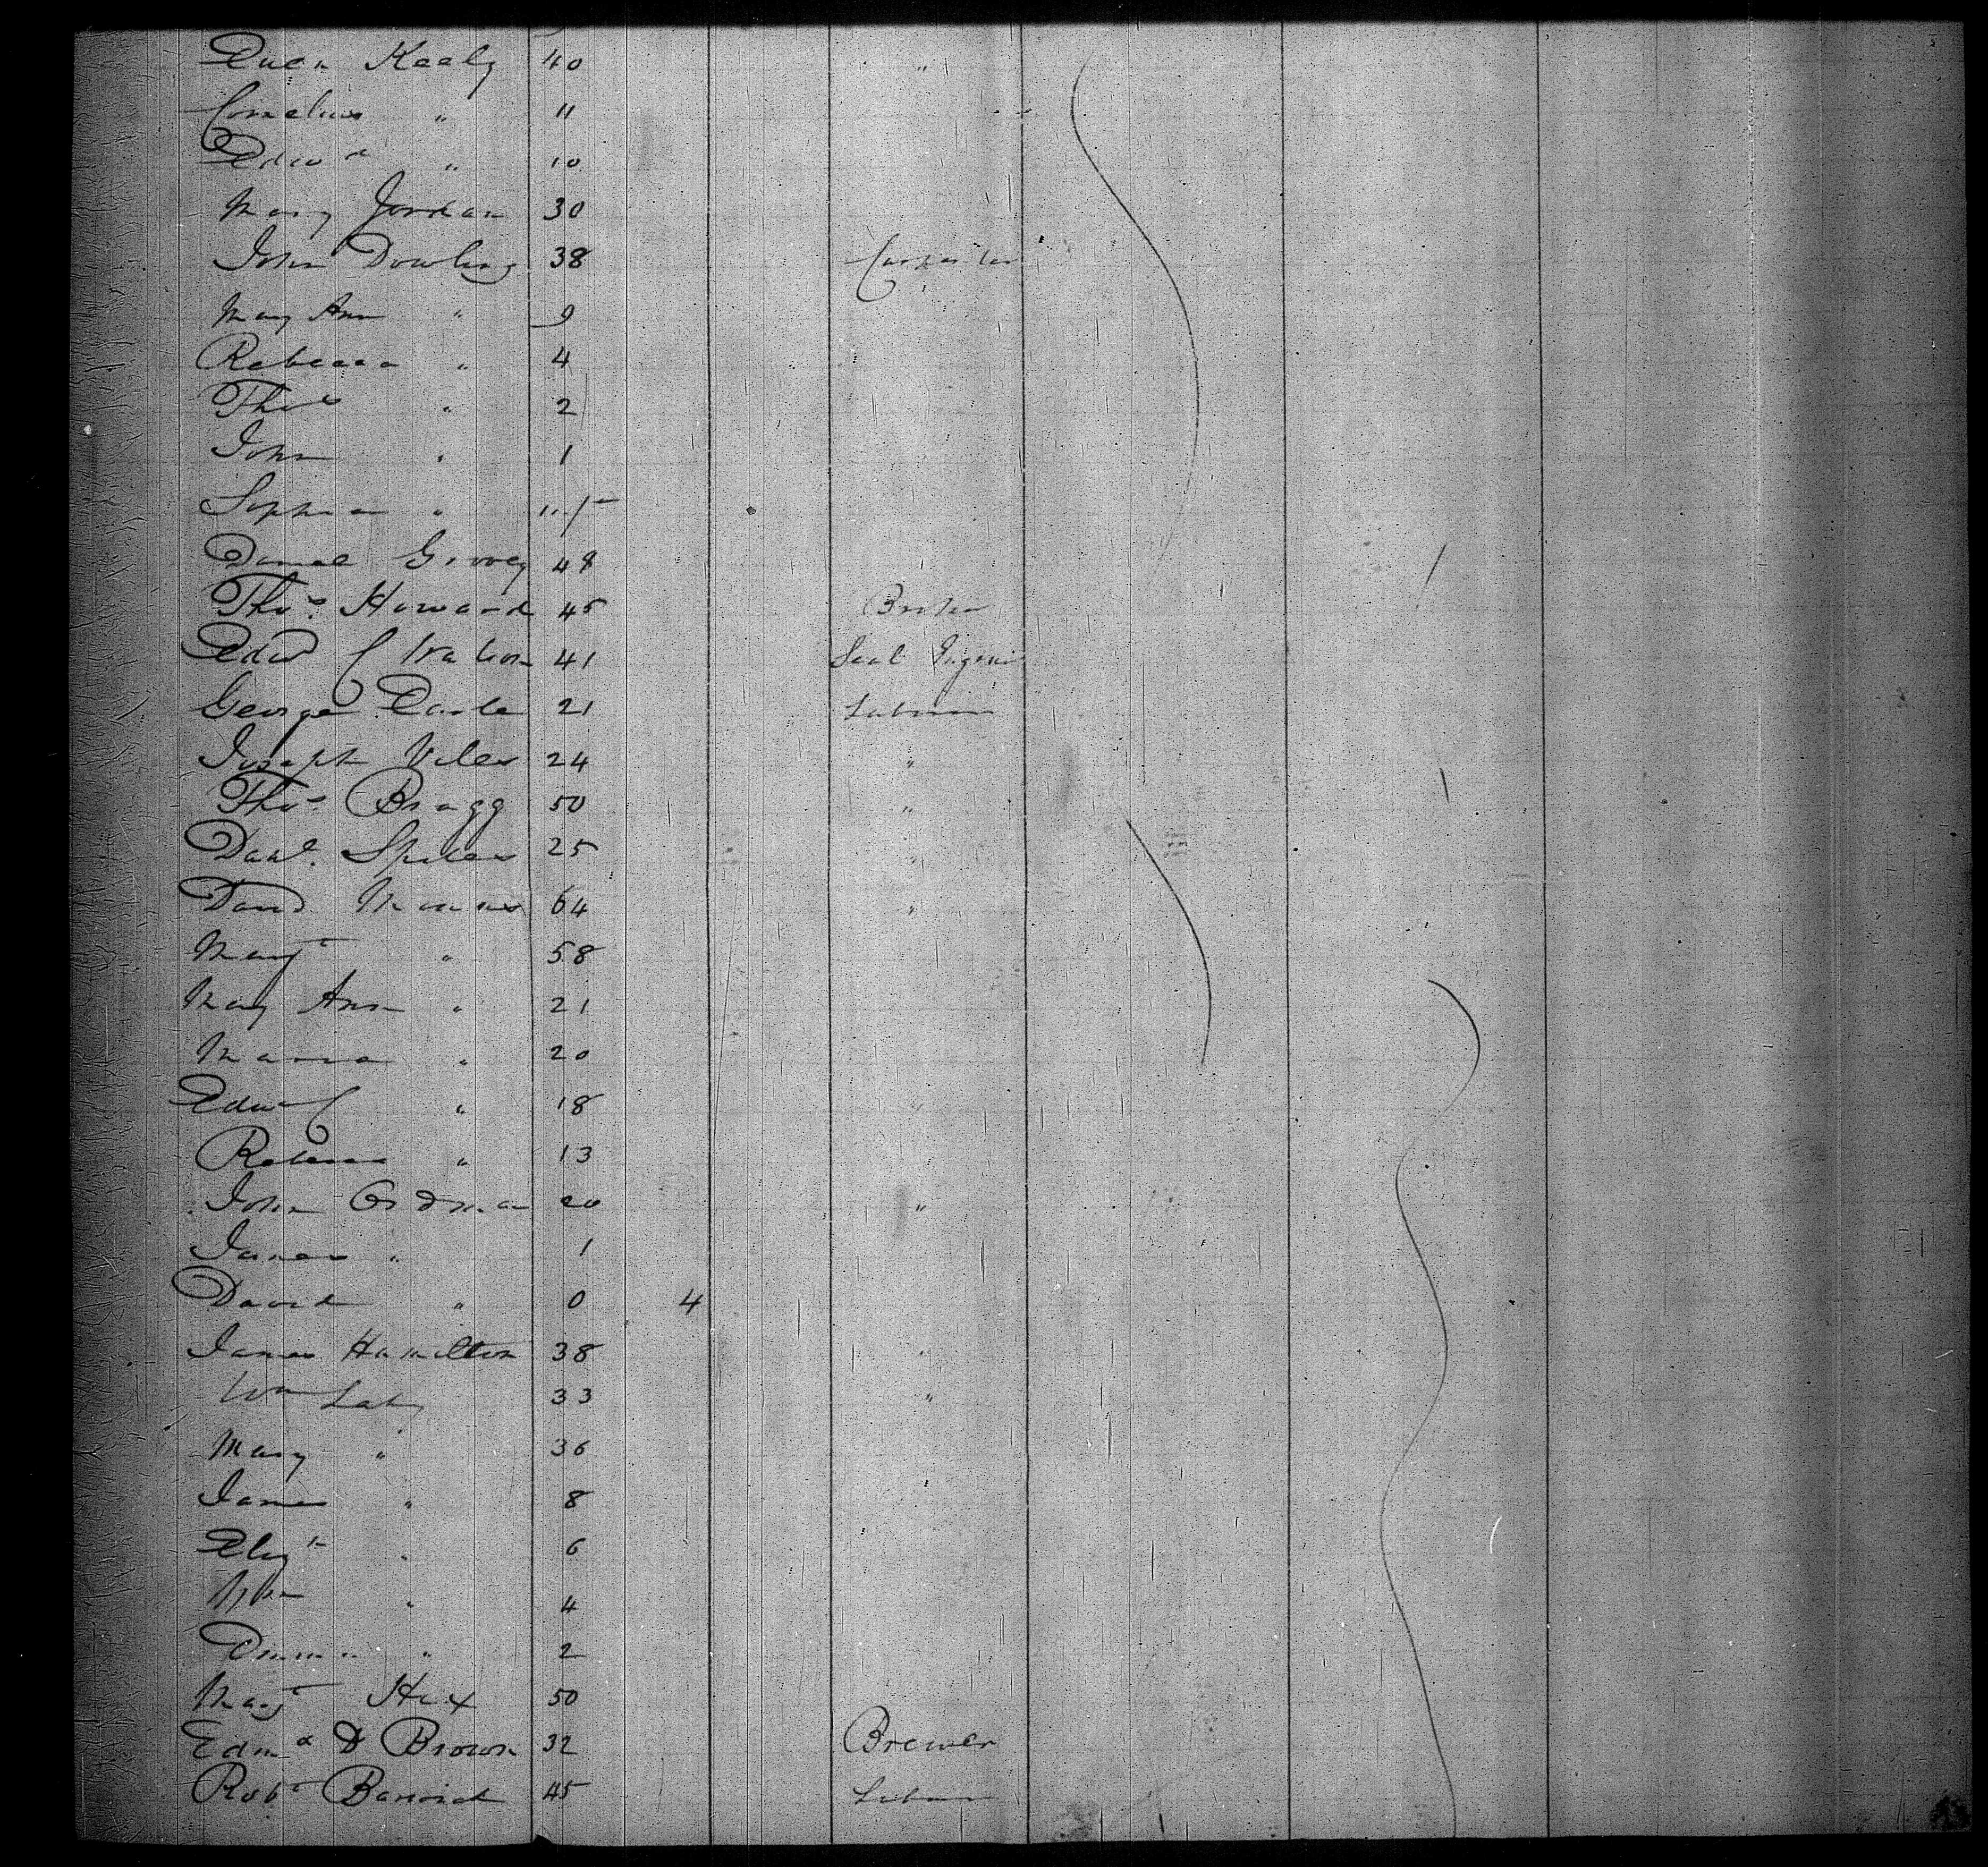 Keely 40 "
Cornelius " 11
Edwd " 10
Mary Jordan 30
John Dowling 38 Carpenter
Mary Ann " 9
Rebecca " 4
Thos " 2
John " 1
Sophia "
Daniel 48
Thos Howard 45
Edwd C Watson 41
George Earle 21 Labourer
Joseph Viles 24 "
Thos Bragg 50 "
Danl. Spiller 25 "
David 64 "
Margt " 58
Mary Ann " 21
Maria " 20
Edwd C " 18
Rebecca " 13
John Ordman 20 "
James " 1
David " 0 4
James Hamilton 38 "
Wm Laby 33 "
Mary " 36
James " 8
Elizh " 6
Wm " 4
Emma " 2
Margt Hux 50
Edmd D Brown 32 Brewer
Robt 45 Labourer